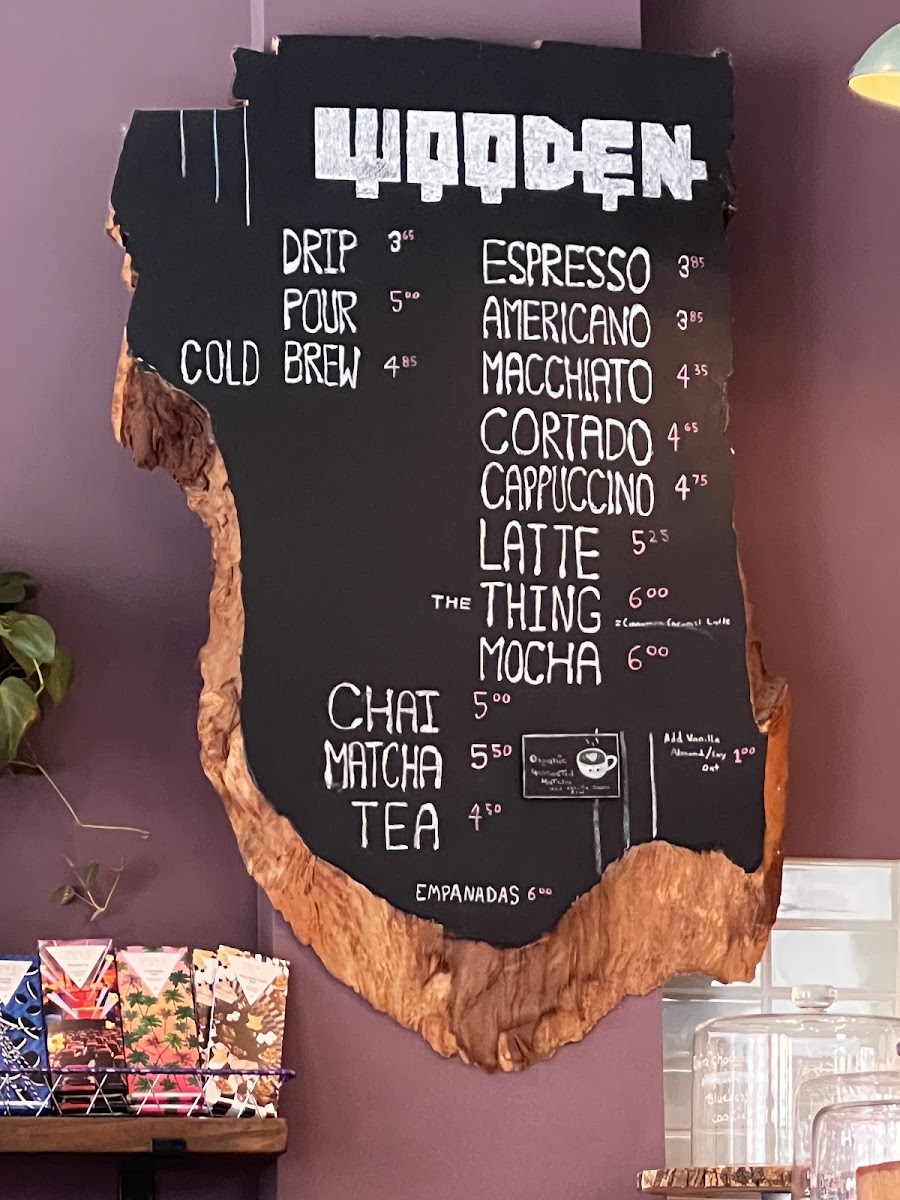 WOODEN
DRIP 3.65
POUR 5.00
COLD BREW 4.85
ESPRESSO 3.85
AMERICANO 3.85
MACCHIATO 4.35
CORTADO 4.65
CAPPUCCINO 4.75
LATTE 5.25
THE THING 6.00
=Cinnamon Caramel Latte
MOCHA 6.00
CHAI 5.00
MATCHA 5.50
TEA 4.50
Organic
Matcha
Add Vanilla
Almond/Soy 1.00
Oat
EMPANADAS 6.00